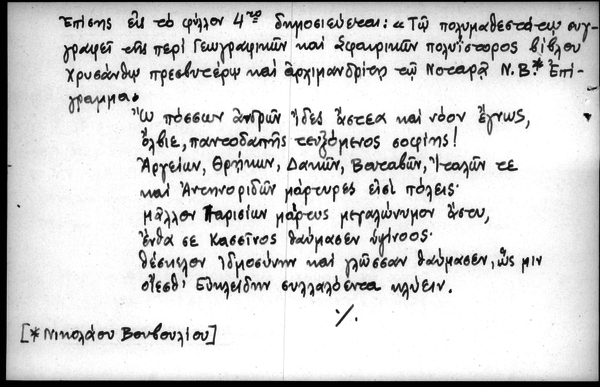 Ἐπίσης εἰς τὸ φύλλον 4ον δημοσιεύεται: «Τῷ πολυμαθεστάτῳ συγ-
γραφεῖ τῆς περὶ Γεωγραφικῶν καὶ Σφαιρικῶν πολυΐστορος βίβλου
Χρυσάνθῳ πρεσβυτέρῳ καὶ ἀρχιμανδρίτῃ τῷ Νοταρᾷ Ν.Β.* Ἐπί-
γραμμα.
Ὢ πόσσων ἀνδρῶν ἴδες ἄστεα καὶ νόον ἔγνως,
ὄλβιε, παντοδαπῆς τευξόμενος σοφίης!
Ἀργείων, Θρῃκῶν, Δακῶν, Βαταβῶν, Ἰταλῶν τε
καὶ Ἀντηνοριδῶν μάρτυρές εἰσι πόλεις·
μᾶλλον Παρισίων μάρτυς μεγαλώνυμον ἄστυ,
ἔνθα σε Κασσῖνος θαύμασεν ὑψίνοος·
θέσκελον ἰδμοσύνην καὶ γλῶσσαν θαύμασεν, ὥς μιν
οἴεσθ' Εὐκλείδην συλλαλόεντα κλύειν.
·/.
[* Νικολάου Βουβουλίου]